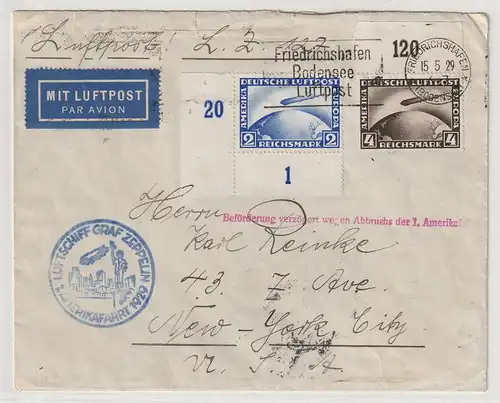 Luftpost! L. Z. 127
120
Friedrichshafen
Bodensee
Luftpost
FRIEDRICHSHAFEN
15.5.29
(BODENSEE)
MIT LUFTPOST
PAR AVION
20
DEUTSCHE LUFTPOST
AMERIKA EUROPA
2 REICHSMARK 2
DEUTSCHE LUFTPOST
AMERIKA EUROPA
4 REICHSMARK 4
1
Herrn
Beförderung verzögert wegen Abbruchs der 1. Amerikaf
Karl Reinke
43 7 Ave.
New-York City
U. S. A
LUFTSCHIFF GRAF ZEPPELIN
1. AMERIKAFAHRT 1929